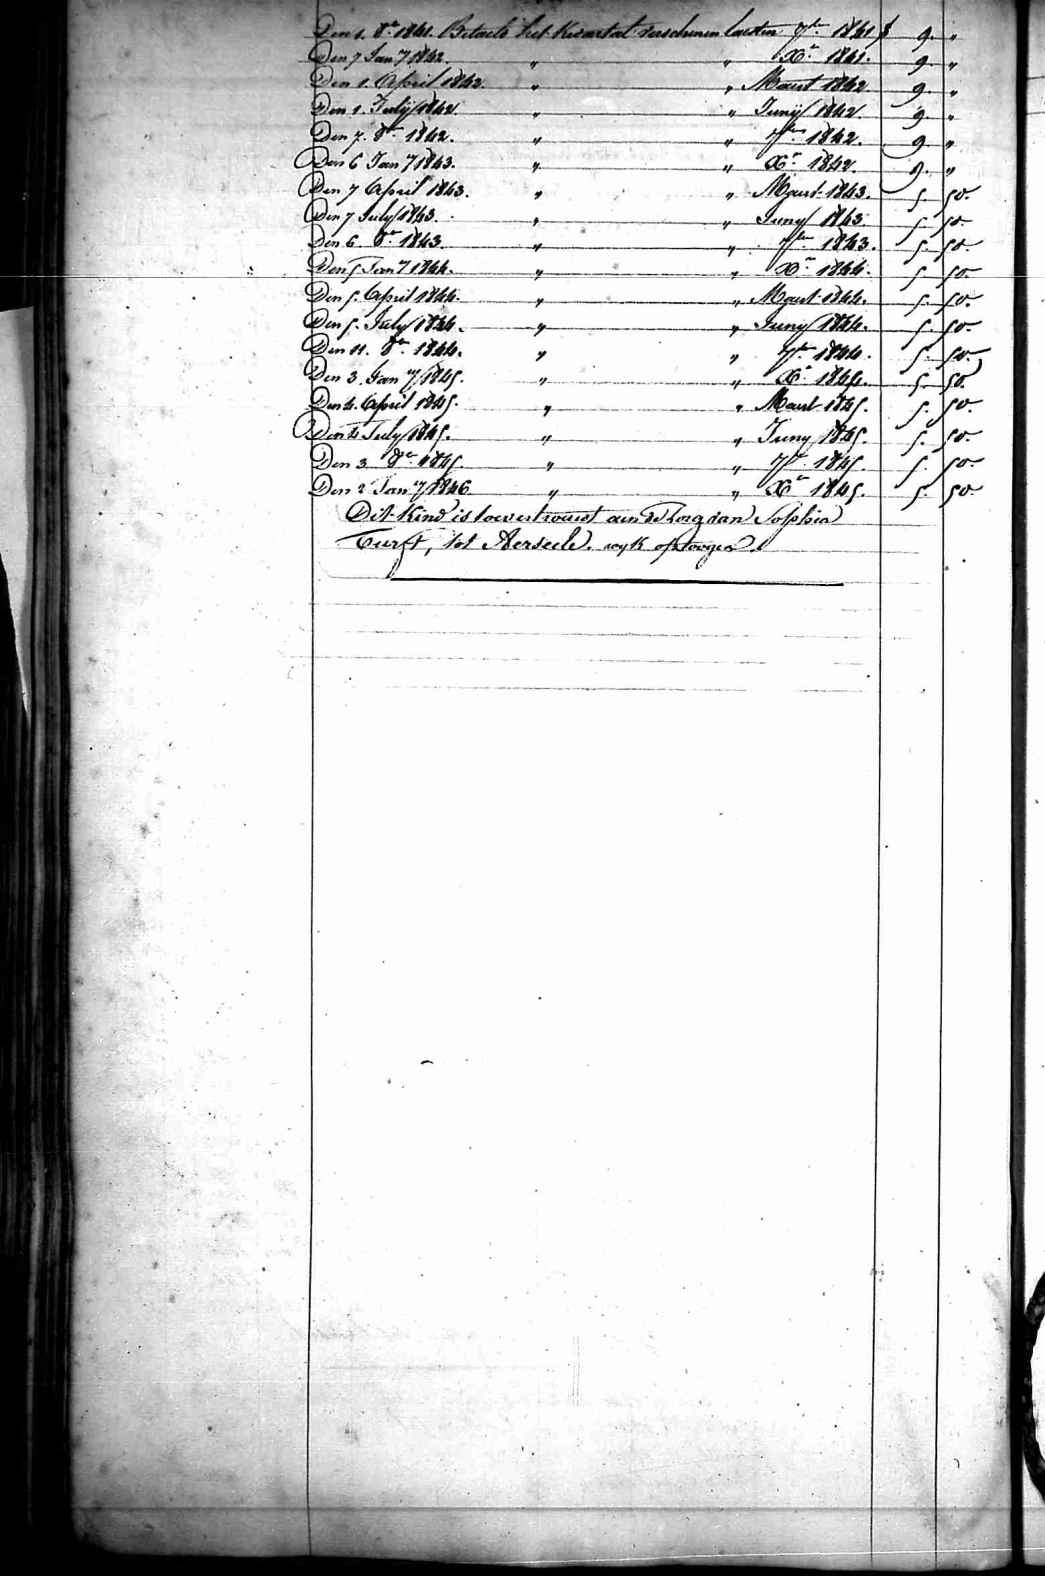 Den 1. 8er 1841. Betaelt het Kwartal verschenen laesten 7ber 1841 f 9. "
Den 7 Jany 1842. " " Xr 1841. 9. "
Den 1. April 1842. " " Maert 1842 9. "
Den 1. July 1842. " " Juny 1842 9. "
Den 7. 8er 1842. " " 7ber 1842. 9. "
Den 6 Jany 1843. " " Xr 1842. 9. "
Den 7 April 1843. " " Maert 1843. 5. 50.
Den 7 July 1843. " " Juny 1843. 5. 50.
Den 6 8er 1843. " " 7ber 1843. 5. 50.
Den 5 Jany 1844. " " Xr 1844. 5. 50.
Den 5. April 1844. " " Maert 1844. 5. 50.
Den 5. July 1844. " " Juny 1844. 5. 50.
Den 11. 8er 1844. " " 7ber 1844. 5. 50.
Den 3. Jany 1845. " " Xr 1844. 5. 50.
Den 4. April 1845. " " Maert 1845. 5. 50.
Den 4 July 1845. " " Juny 1845. 5. 50.
Den 3 8er 1845. " " 7br 1845. 5. 50.
Den 2 Jany 1846. " " Xer 1845. 5. 50.
Dit kind is toevertrouwt aen de Zorg van Sophia
Turft, tot Aerseele. wyk